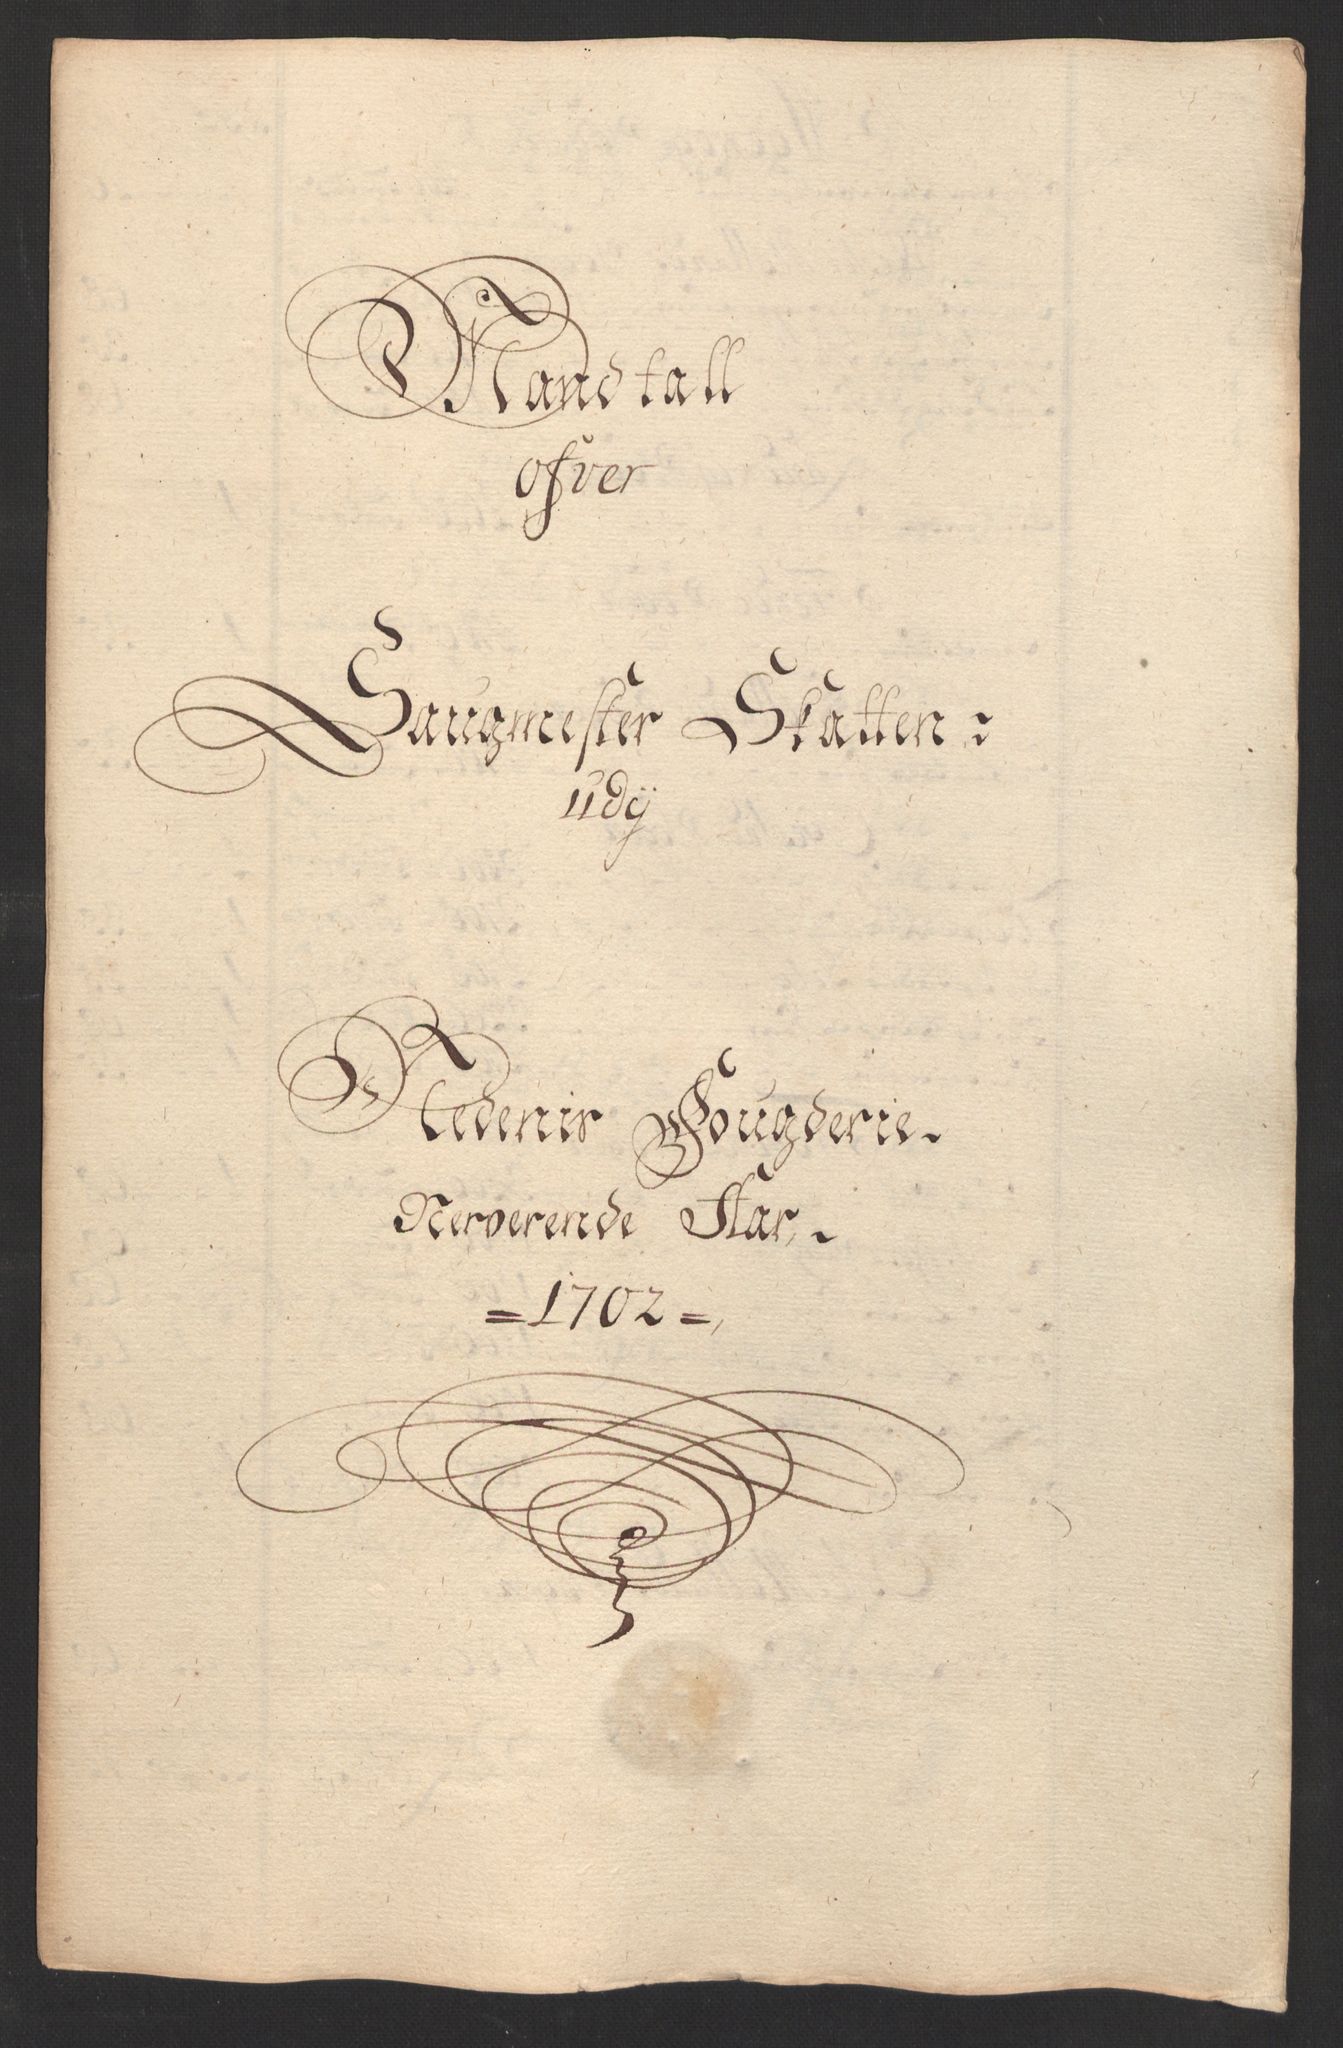 Mandtall
ofver
Saugmester Skatten
udÿ
Nedenis Fougderie.
Nerverende Aar.
=1702=